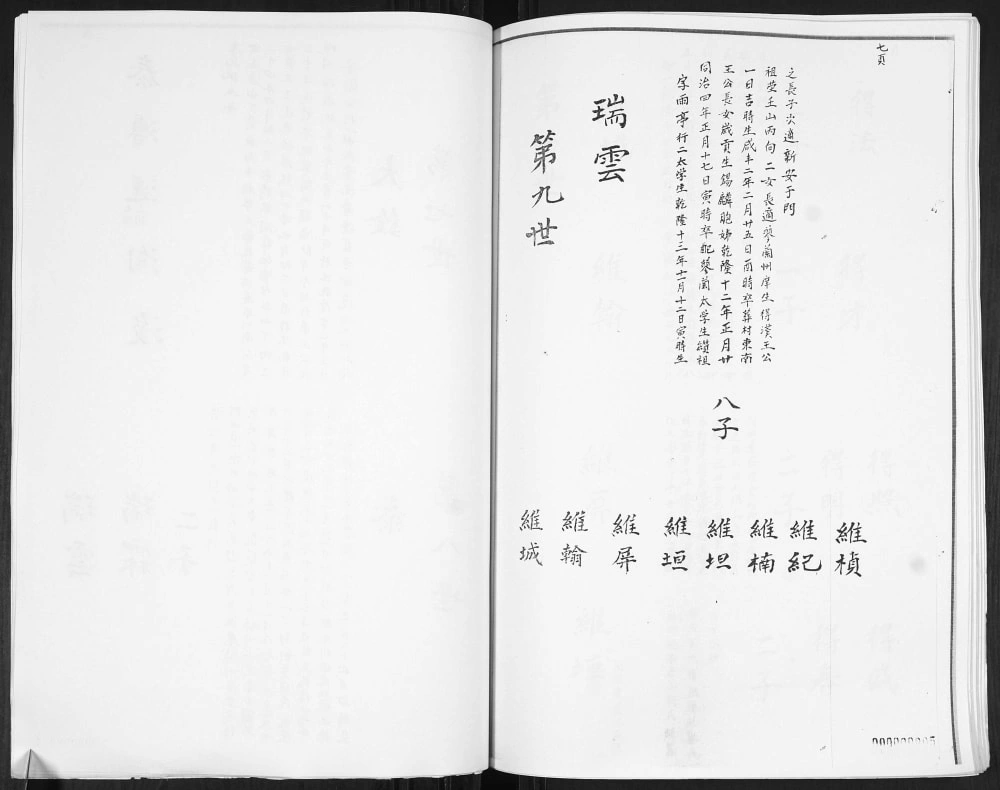 七頁
第九世
瑞雲
字雨亭行二太学生乾隆十三年十一月十二日寅時生
同治四年正月十七日寅時卒配蓼蘭太学生纘祖
王公長女歲貢生錫麟胞姊乾隆十二年正月廿
一日吉時生咸丰二年二月廿五日酉時卒葬村東南
祖塋壬山丙向二女長適蓼蘭州庠生得漢王公
之長子次適新安于門
八子
維城
維翰
維屏
維垣
維坦
維楠
維紀
維楨